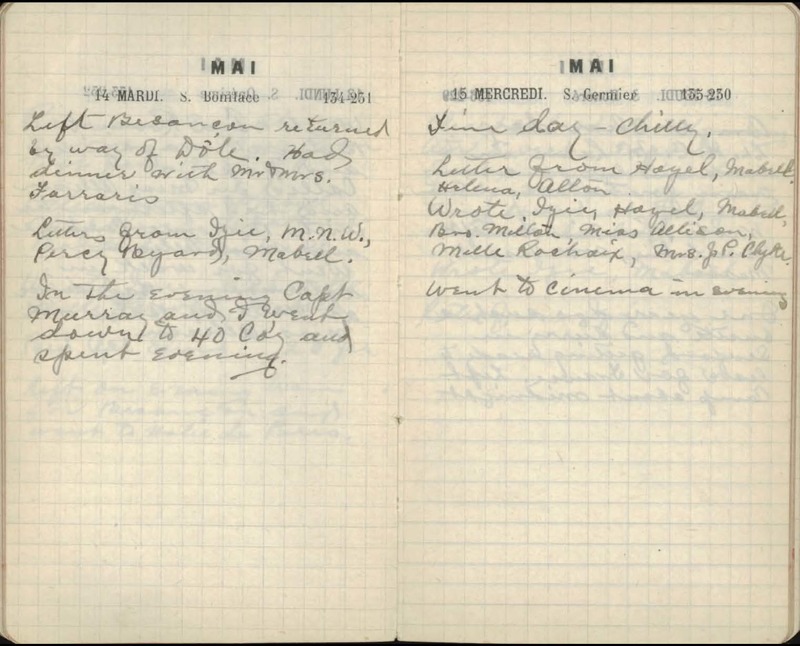 MAI
14 MARDI. S. Boniface 134-231
Left Besancon returned
by way of Dôle. Had
dinner with Mr & Mrs.
Farraris
Letters from Izie, M.N.W.,
Percy Byard, Mabell.
In the evening Capt
Murray and I went
down to 40 Coy and
spent evening.
MAI
15 MERCREDI. S. Germier 135-230
Fine day - chilly.
Letter from Hazel, Mabell,
Helena, Alton
Wrote, Izie, Hazel, Mabell,
Bro. Milton Miss Allison,
Melle Rochaix, Mrs. J. P. Clyde.
Went to cinema in evening